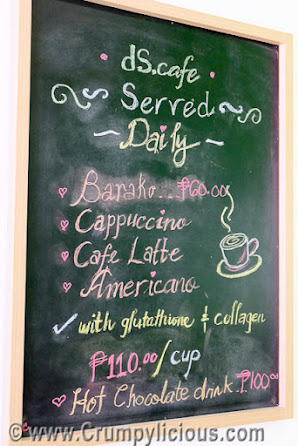 dS.cafe
Served
Daily
Barako...₱60.00
Cappuccino
Cafe Latte
Americano
with glutathione & collagen
₱110.00/cup
Hot Chocolate drink..₱100.00
© www.Crumpylicious.com